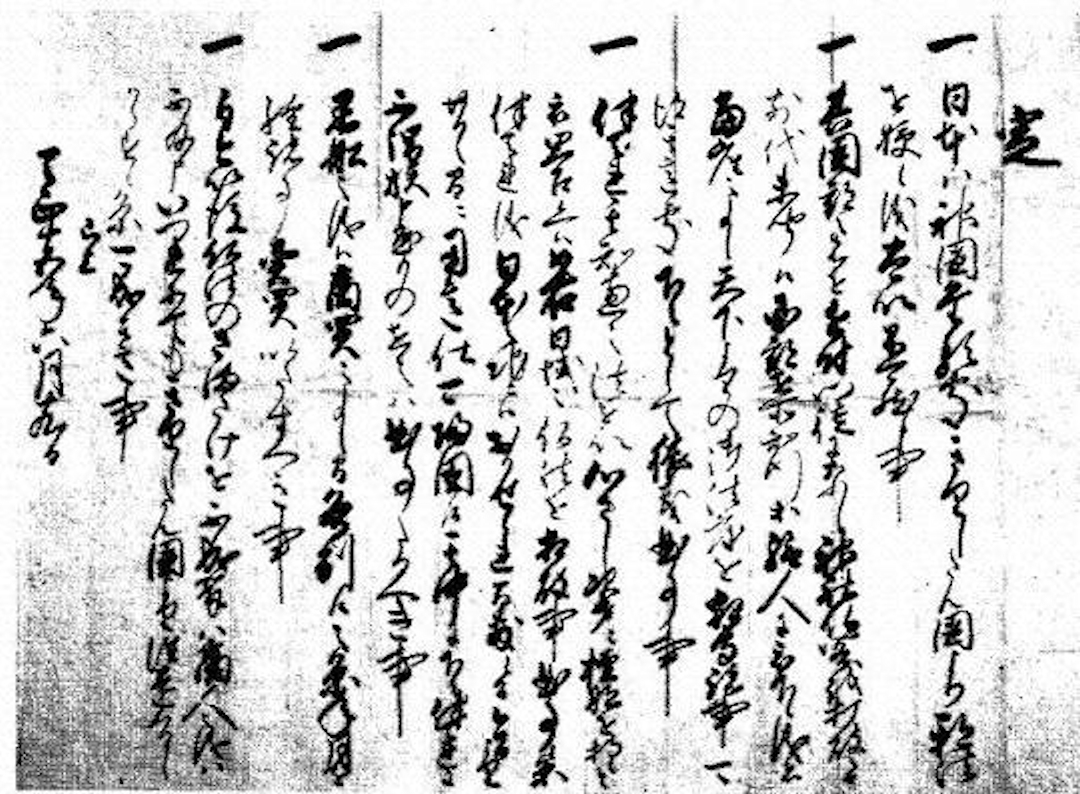 定
一 日本ハ神国たる処きりしたん国より邪法
を授候儀太以不可然候事
一 其国郡之者を近付門徒になし神社仏閣を打破之由
前代未聞候国郡在所知行等給人に被下候儀者
当座之事候天下よりの御法度を相守諸事可
得其意処下々として猥義曲事事
一 伴天連其知恵之法を以心さし次第ニ檀那を持候
と被思召候へハ如右日域之仏法を相破事曲事候条
伴天連儀日本之地ニハおかせられ間敷候間今日より
廿日之間ニ用意仕可帰国候其中に下々伴天連に
不謂族申懸もの在之ハ曲事たるへき事
一 黒船之儀ハ商買之事候間各別候之条年月を
経諸事売買いたすへき事
一 自今以後仏法のさまたけを不成輩ハ商人之儀ハ
不及申いつれにてもきりしたん国より往還
くるしからす候条可成其意事
已上
天正十五年六月十九日